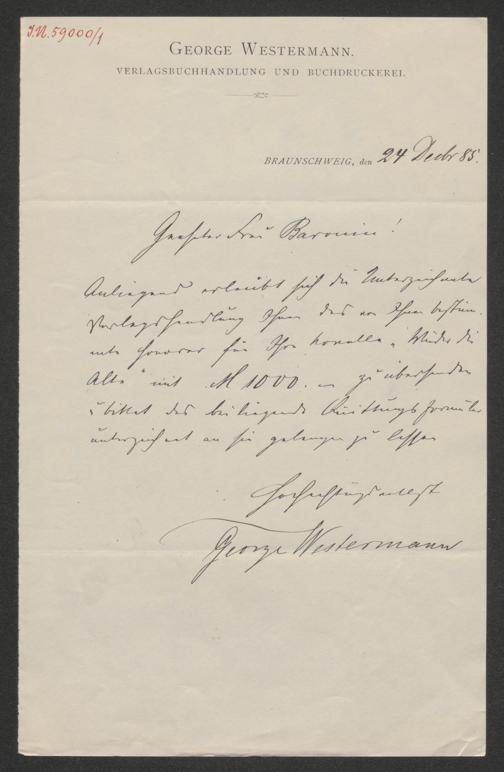 I.N. 59000/1
GEORGE WESTERMANN.
VERLAGSBUCHHANDLUNG UND BUCHDRUCKEREI.
BRAUNSCHWEIG, den 24 Decbr 85.
Geehrte Frau Baronin!
Anliegend erlaubt sich die Unterzeichnete
Verlagshandlung Ihnen das von Ihnen bestim
mte Honorar für Ihre Novelle „Wieder die
Alte“ mit M 1000. – zu übersenden
u bittet das beiliegende Quittungsformular
unterzeichnet an sie gelangen zu lassen
Hochachtungsvollst
George Westermann